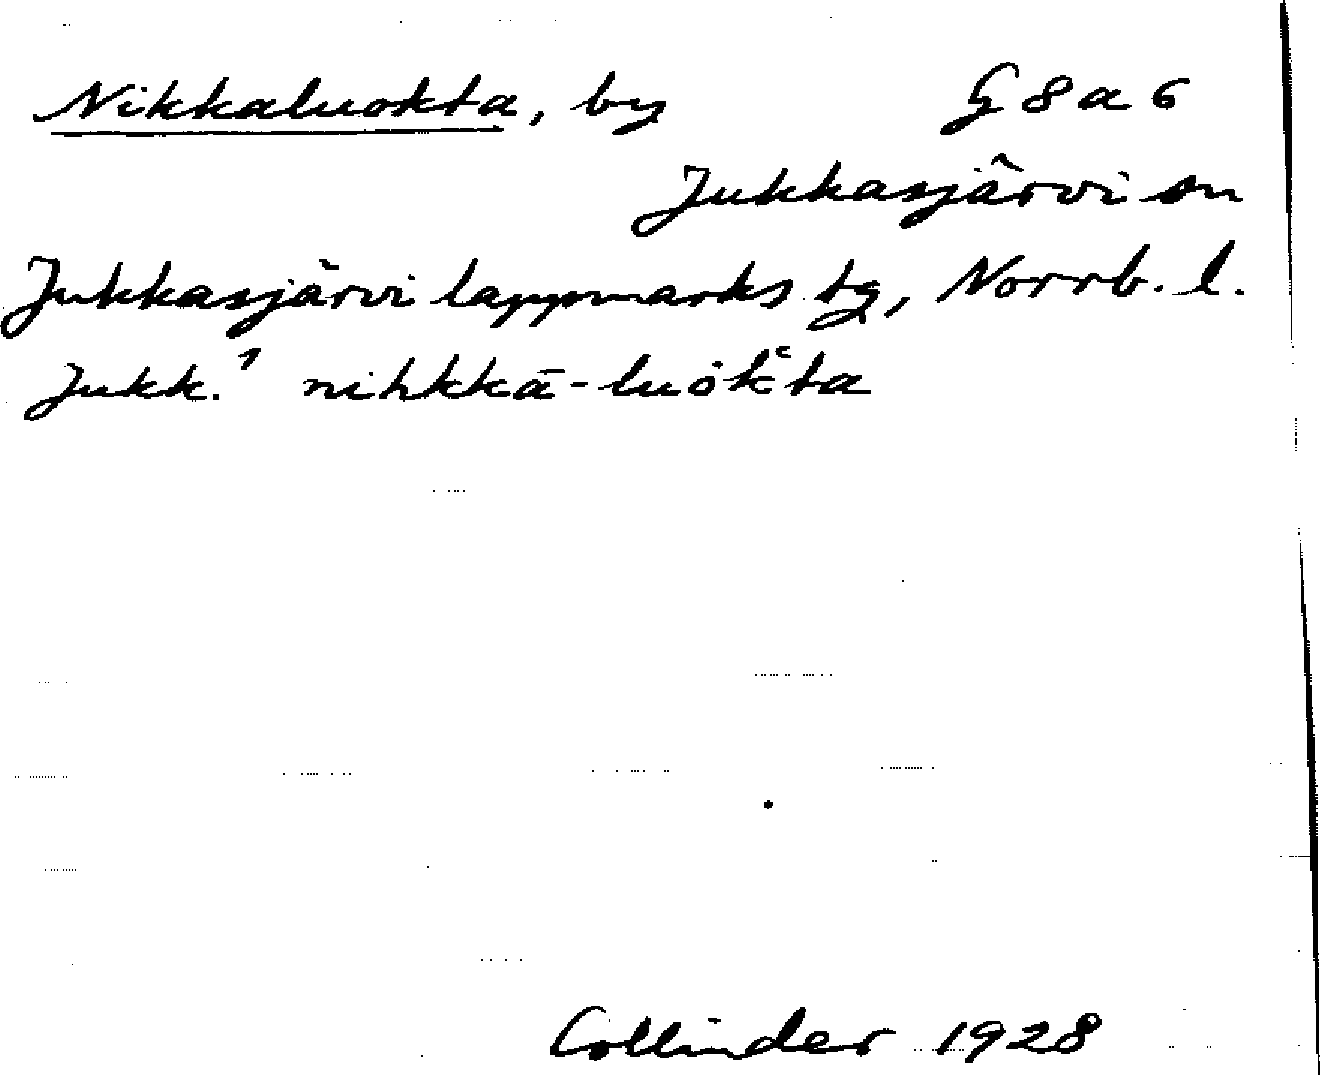 Nikkaluokta, by G 8 a 6
Jukkasjärvi sn
Jukkasjärvi lappmarks tg, Norrb. l.
Jukk.¹ nihkkā-luok̔ta
Collinder 1928